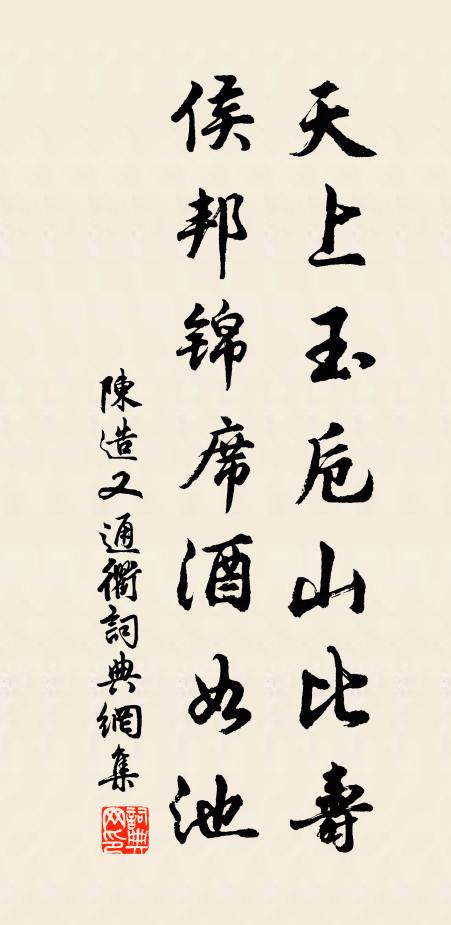 天上玉卮山比壽
侯邦锦席酒如池
陳造又通衢詞典網集
詞典网印